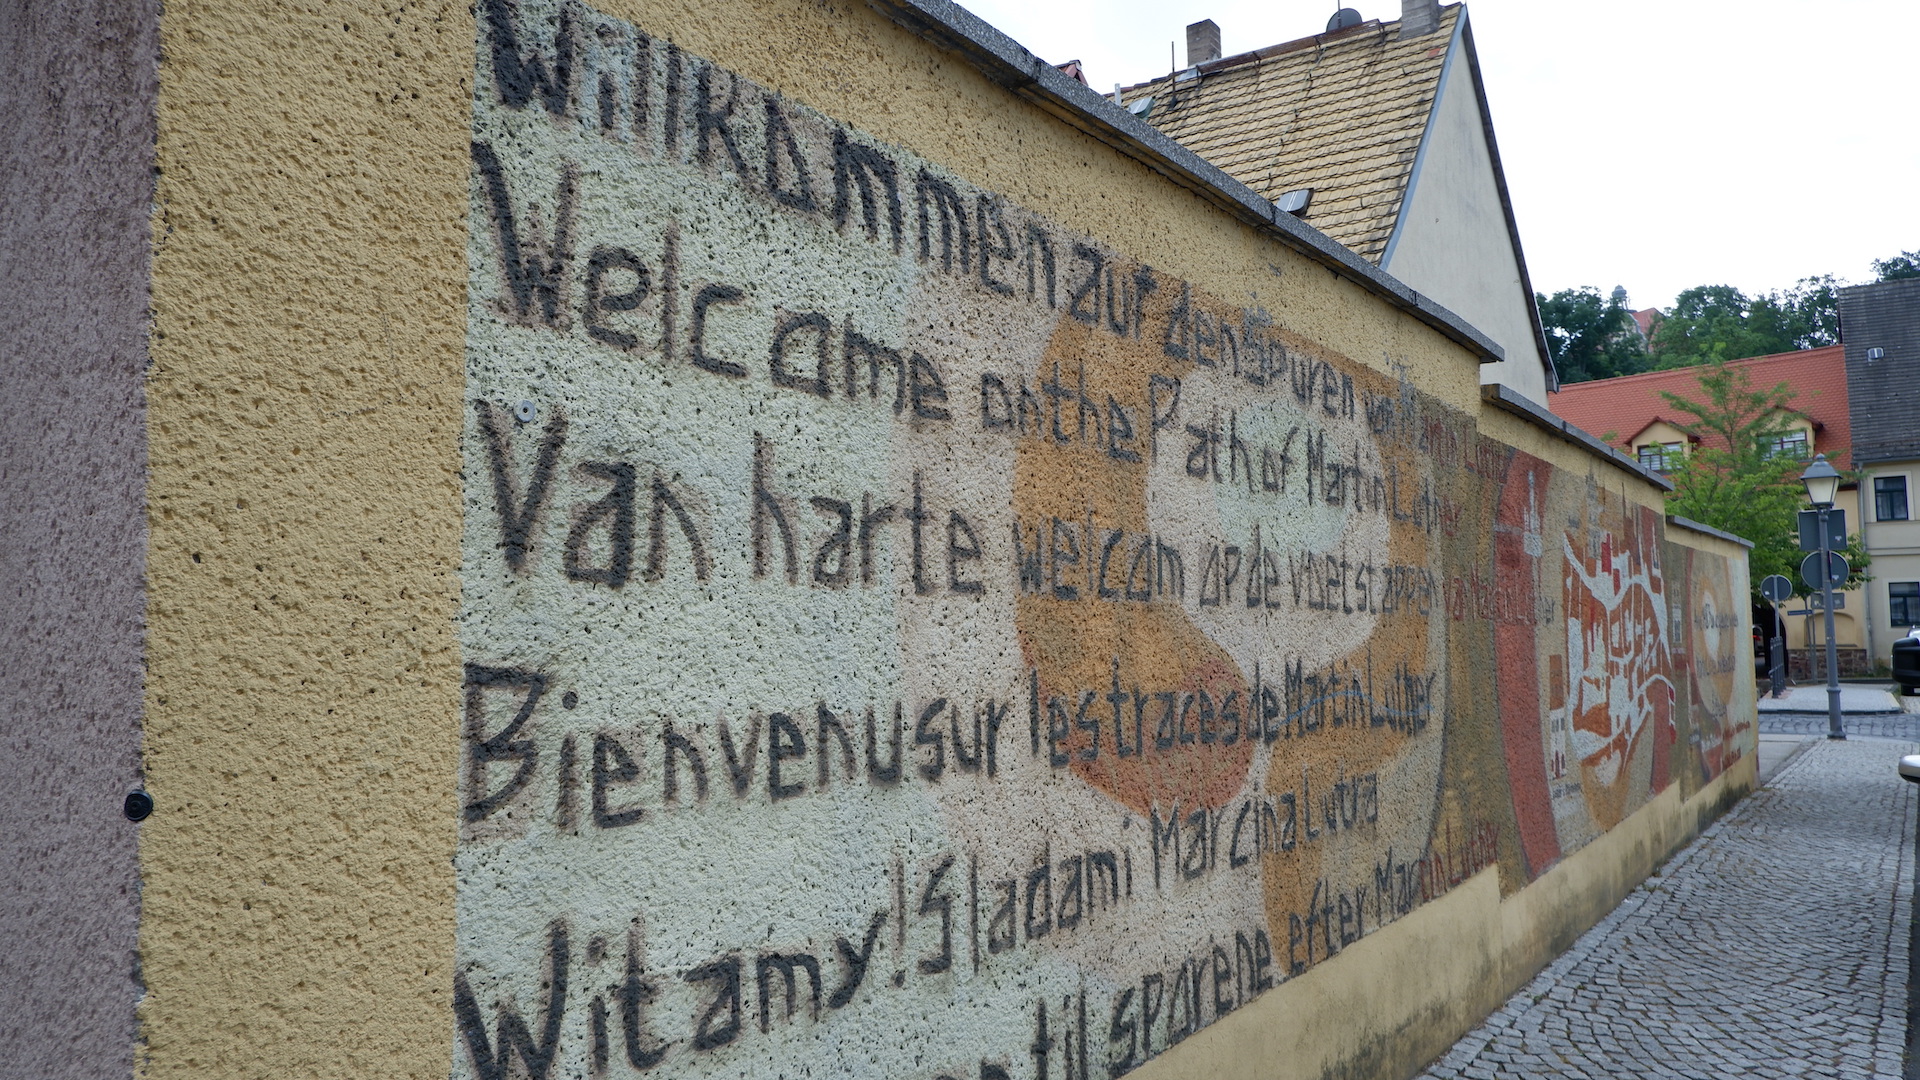 Willkommen auf den Spuren von Martin Luther
Welcome on the Path of Martin Luther
Van harte welcom op de voetstappen van Martin Luther
Bienvenu sur les traces de Martin Luther
Witamy! Sladami Marcina Lutra
til sporene efter Martin Luther